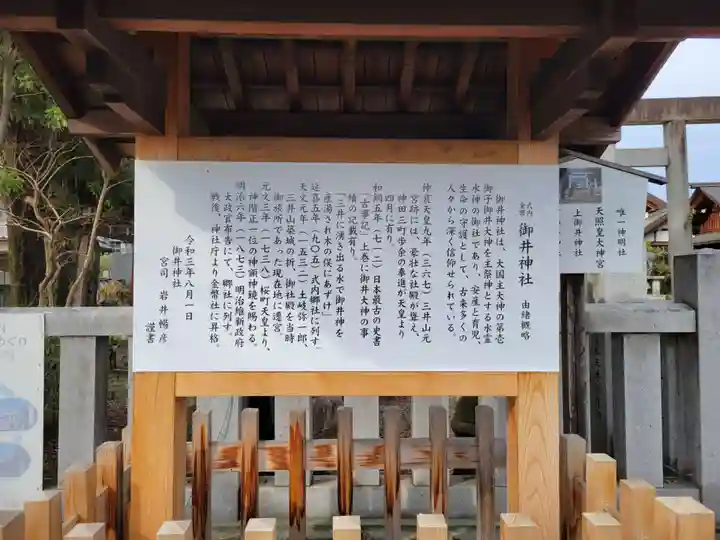 式内
金幣
御井神社 由緒概略
御井神社は、大国主大神の第壱
御子御井神を主祭神とする水霊
水神の御社であり、安産と育児、
生命の守護として、古来多くの
人々から深く信仰せられている。
仲哀天皇九年(三六七)三井山元
宮跡には、豪壮な社殿が聳え、
神田三町歩余の奉進が天皇より
四月に有り。
和銅五年(七一二)日本最古の史書
「古事記」上巻に御井大神の事
績の記載有り。
「三井に湧き出る水で御井神を
産湯され木の俣にあずけ」
延喜五年(九〇五)式内郷社に列す。
天文元年(一五三二)土岐弥一郎、
三井山築城の折、御社殿を当時
御旅所であった現在地に遷宮。
元文三年(一七三八)桜町天皇より、
神階正一位の神額神鏡を賜わる。
明治六年(一八七三)明治維新政府
太政官布告にて、郷社に列す。
戦後、神社庁より金幣社に昇格。
令和三年八月一日
御井神社
宮司 岩井暢彦
謹書
唯一神明社
天照皇大神宮
上御井神社